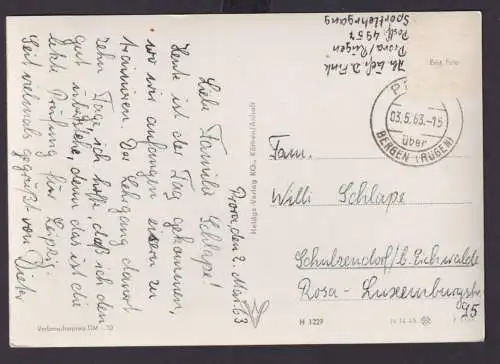 Prora, den 2. Mai 63
Liebe Familie Schlape!
Heute ist der Tag gekommen,
wo wir anfangen eisern zu
trainieren. Der Lehrgang dauert
zehn Tage, ich hoffe, daß ich den
gut überstehe, denn das ist die
letzte Prüfung für Leipzig.
Seit vielmals gegrüßt von Dieter
Verbraucherpreis DM -,10
Heldge-Verlag KG., Köthen/Anhalt
H 1229
Echt Foto
Abs. Gefr. D. Fink
Prora/Rügen
Postf. 4957
Sportlehrgang
03.5.63.-15
über
BERGEN (RÜGEN)
Fam.
Willi Schlape
Schulzendorf/b. Eichwalde
Rosa-Luxemburgstr.
95